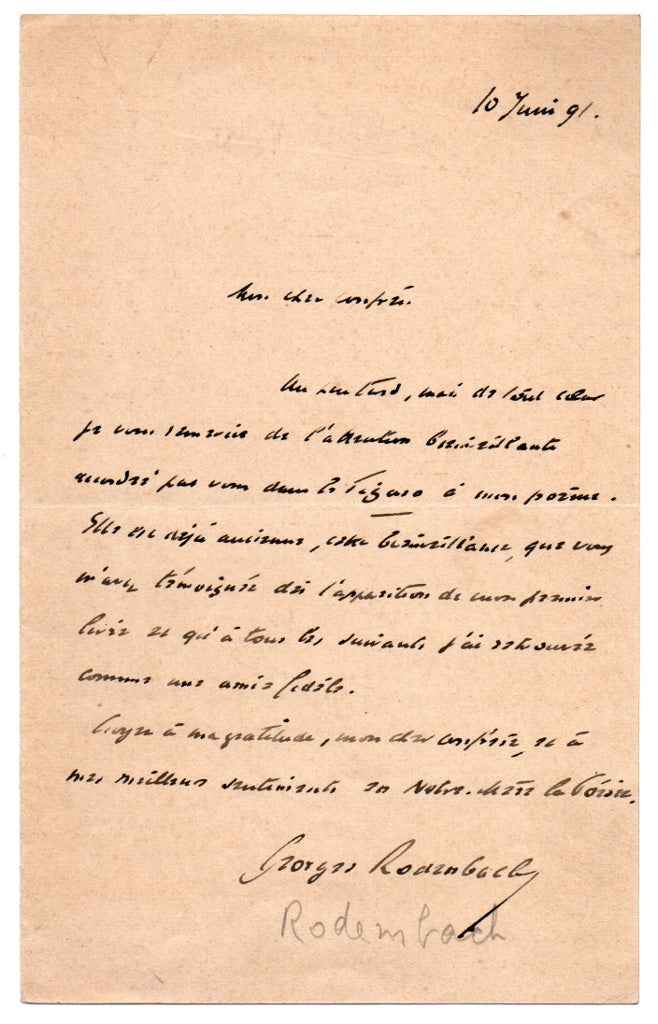 10 Juin 91.
Mon cher confrère.
Un peu tard, mais de tout cœur
je vous remercie de l'attention bienveillante
accordée par vous dans le Figaro à mon poème.
Elle est déjà ancienne, cette bienveillance, que vous
m'avez témoignée dès l'apparition de mon premier
livre et qu'à tous les suivants j'ai retrouvée
comme une amie fidèle.
Croyez à ma gratitude, mon cher confrère, et à
mes meilleurs sentiments en Notre-Mère la Poésie.
Georges Rodenbach
Rodembach